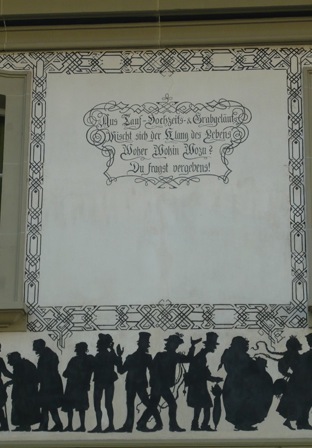 Aus Tauf-Hochzeits-&Grabgeläut
Mischt sich der Klang des Lebens
Woher Wohin Wozu?
Du fragst vergebens!